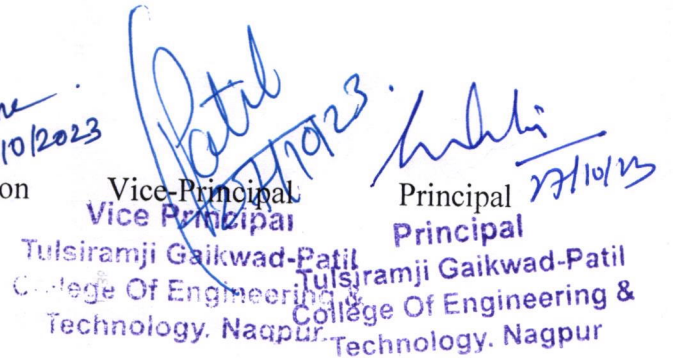 10/2023
Patil
27/10/23
on Vice-Principal Principal
Vice Principal
Tulsiramji Gaikwad-Patil
College Of Engineering &
Technology. Nagpur
Principal
Tulsiramji Gaikwad-Patil
College Of Engineering &
Technology. Nagpur